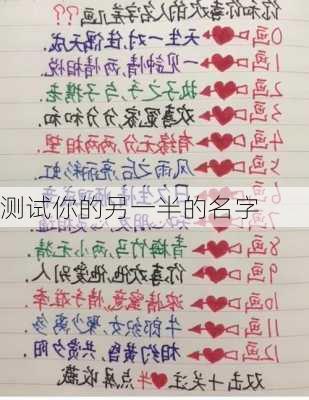 你和你喜欢的人名字差几画??
0画 天生一对,佳偶天成.
1画 一见钟情,两情相悦.
画 执子之手,与子携老.
画 欢喜冤家,分分和和.
画 有缘无分,两两相望.
画 风雨之后,亮丽彩虹.
测试你的另一半的名字
画 青梅竹马,两小无猜.
画 你喜欢他,他爱别人.
10画 浓情蜜意,情
11画 牛郎织女,聚少离多.
12画 相约黄昏,共赏夕阳.
双击+关注 点亮收藏